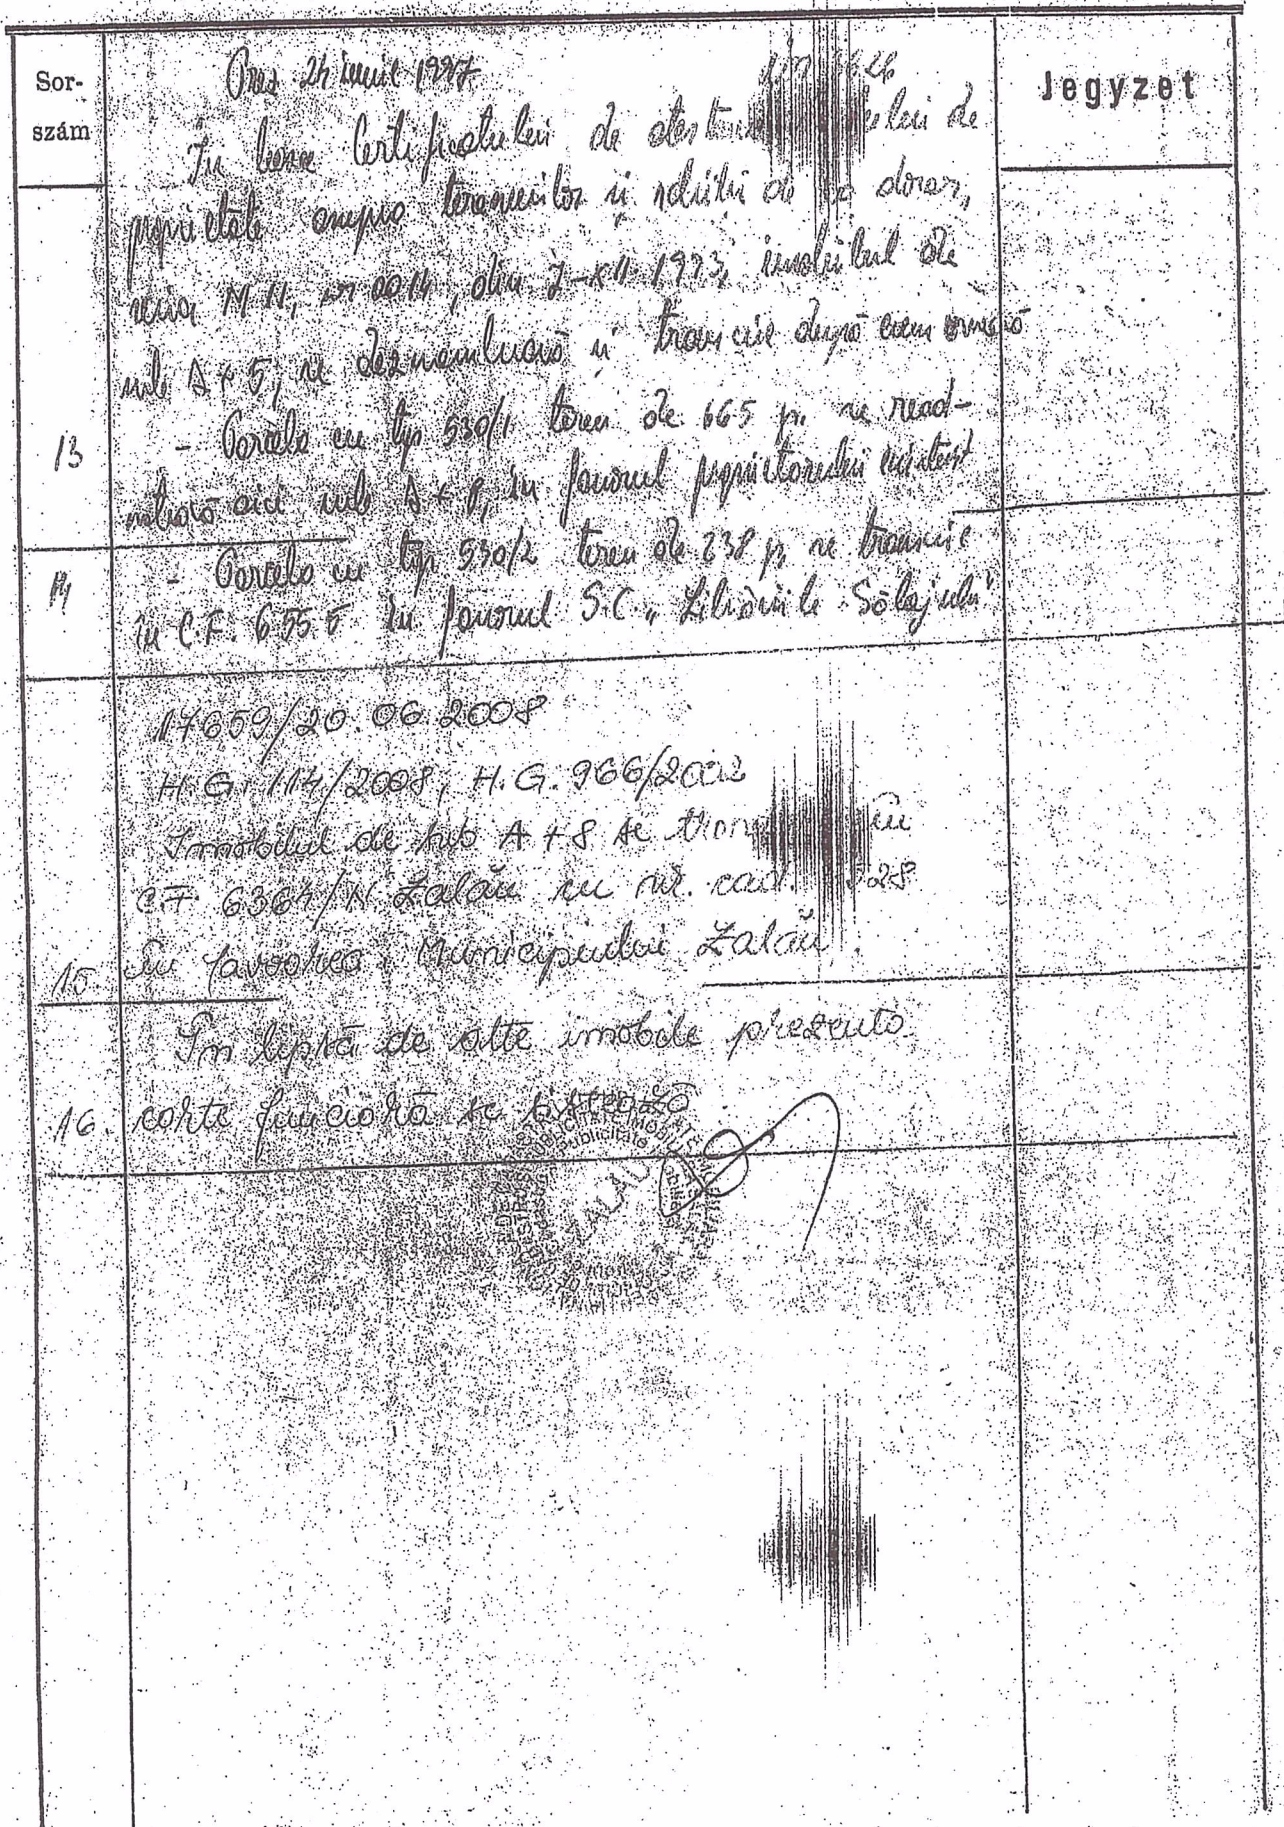 Sor-
szám
Jegyzet
Prez 24 iunie 1997
În baza Certificatului de atestare de
proprietate asupra terenurilor și clădirilor
seria M 11, nr 0014, din 1993, imobilul de
sub A + 5, se dezmembrează și transcrie după cum urmează
- Parcela cu top 530/1 teren de 665 p. se read-
13
notează aici sub A + 8, în favoarea proprietarului
- Parcela cu top 530/2 teren de 238 p. se transcrie
14
în C.F. 6555 în favoarea S.C. „Librăriile Sălajului"
17659/20.06.2008
H.G. 114/2008, H.G. 966/2002
Imobilul de sub A + 8 se în
CF 6364/N Zalău cu nr. cad. 28
15
în favoarea Municipiului Zalău.
În lipsă de alte imobile prezenta
16.
carte funciară se sistează
ZALĂU